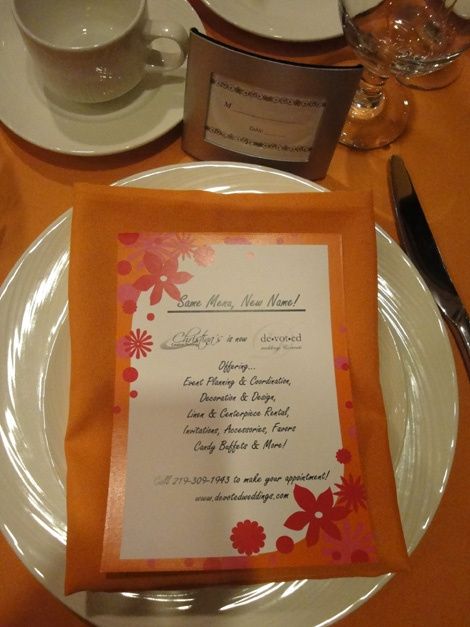 M
Same Menu, New Name!
Christina's is now de·vot·ed
Offering...
Event Planning & Coordination,
Decoration & Design,
Linen & Centerpiece Rental,
Invitations, Accessories, Favors
Candy Buffets & More!
Call 219-309-1943 to make your appointment!
www.devotedweddings.com